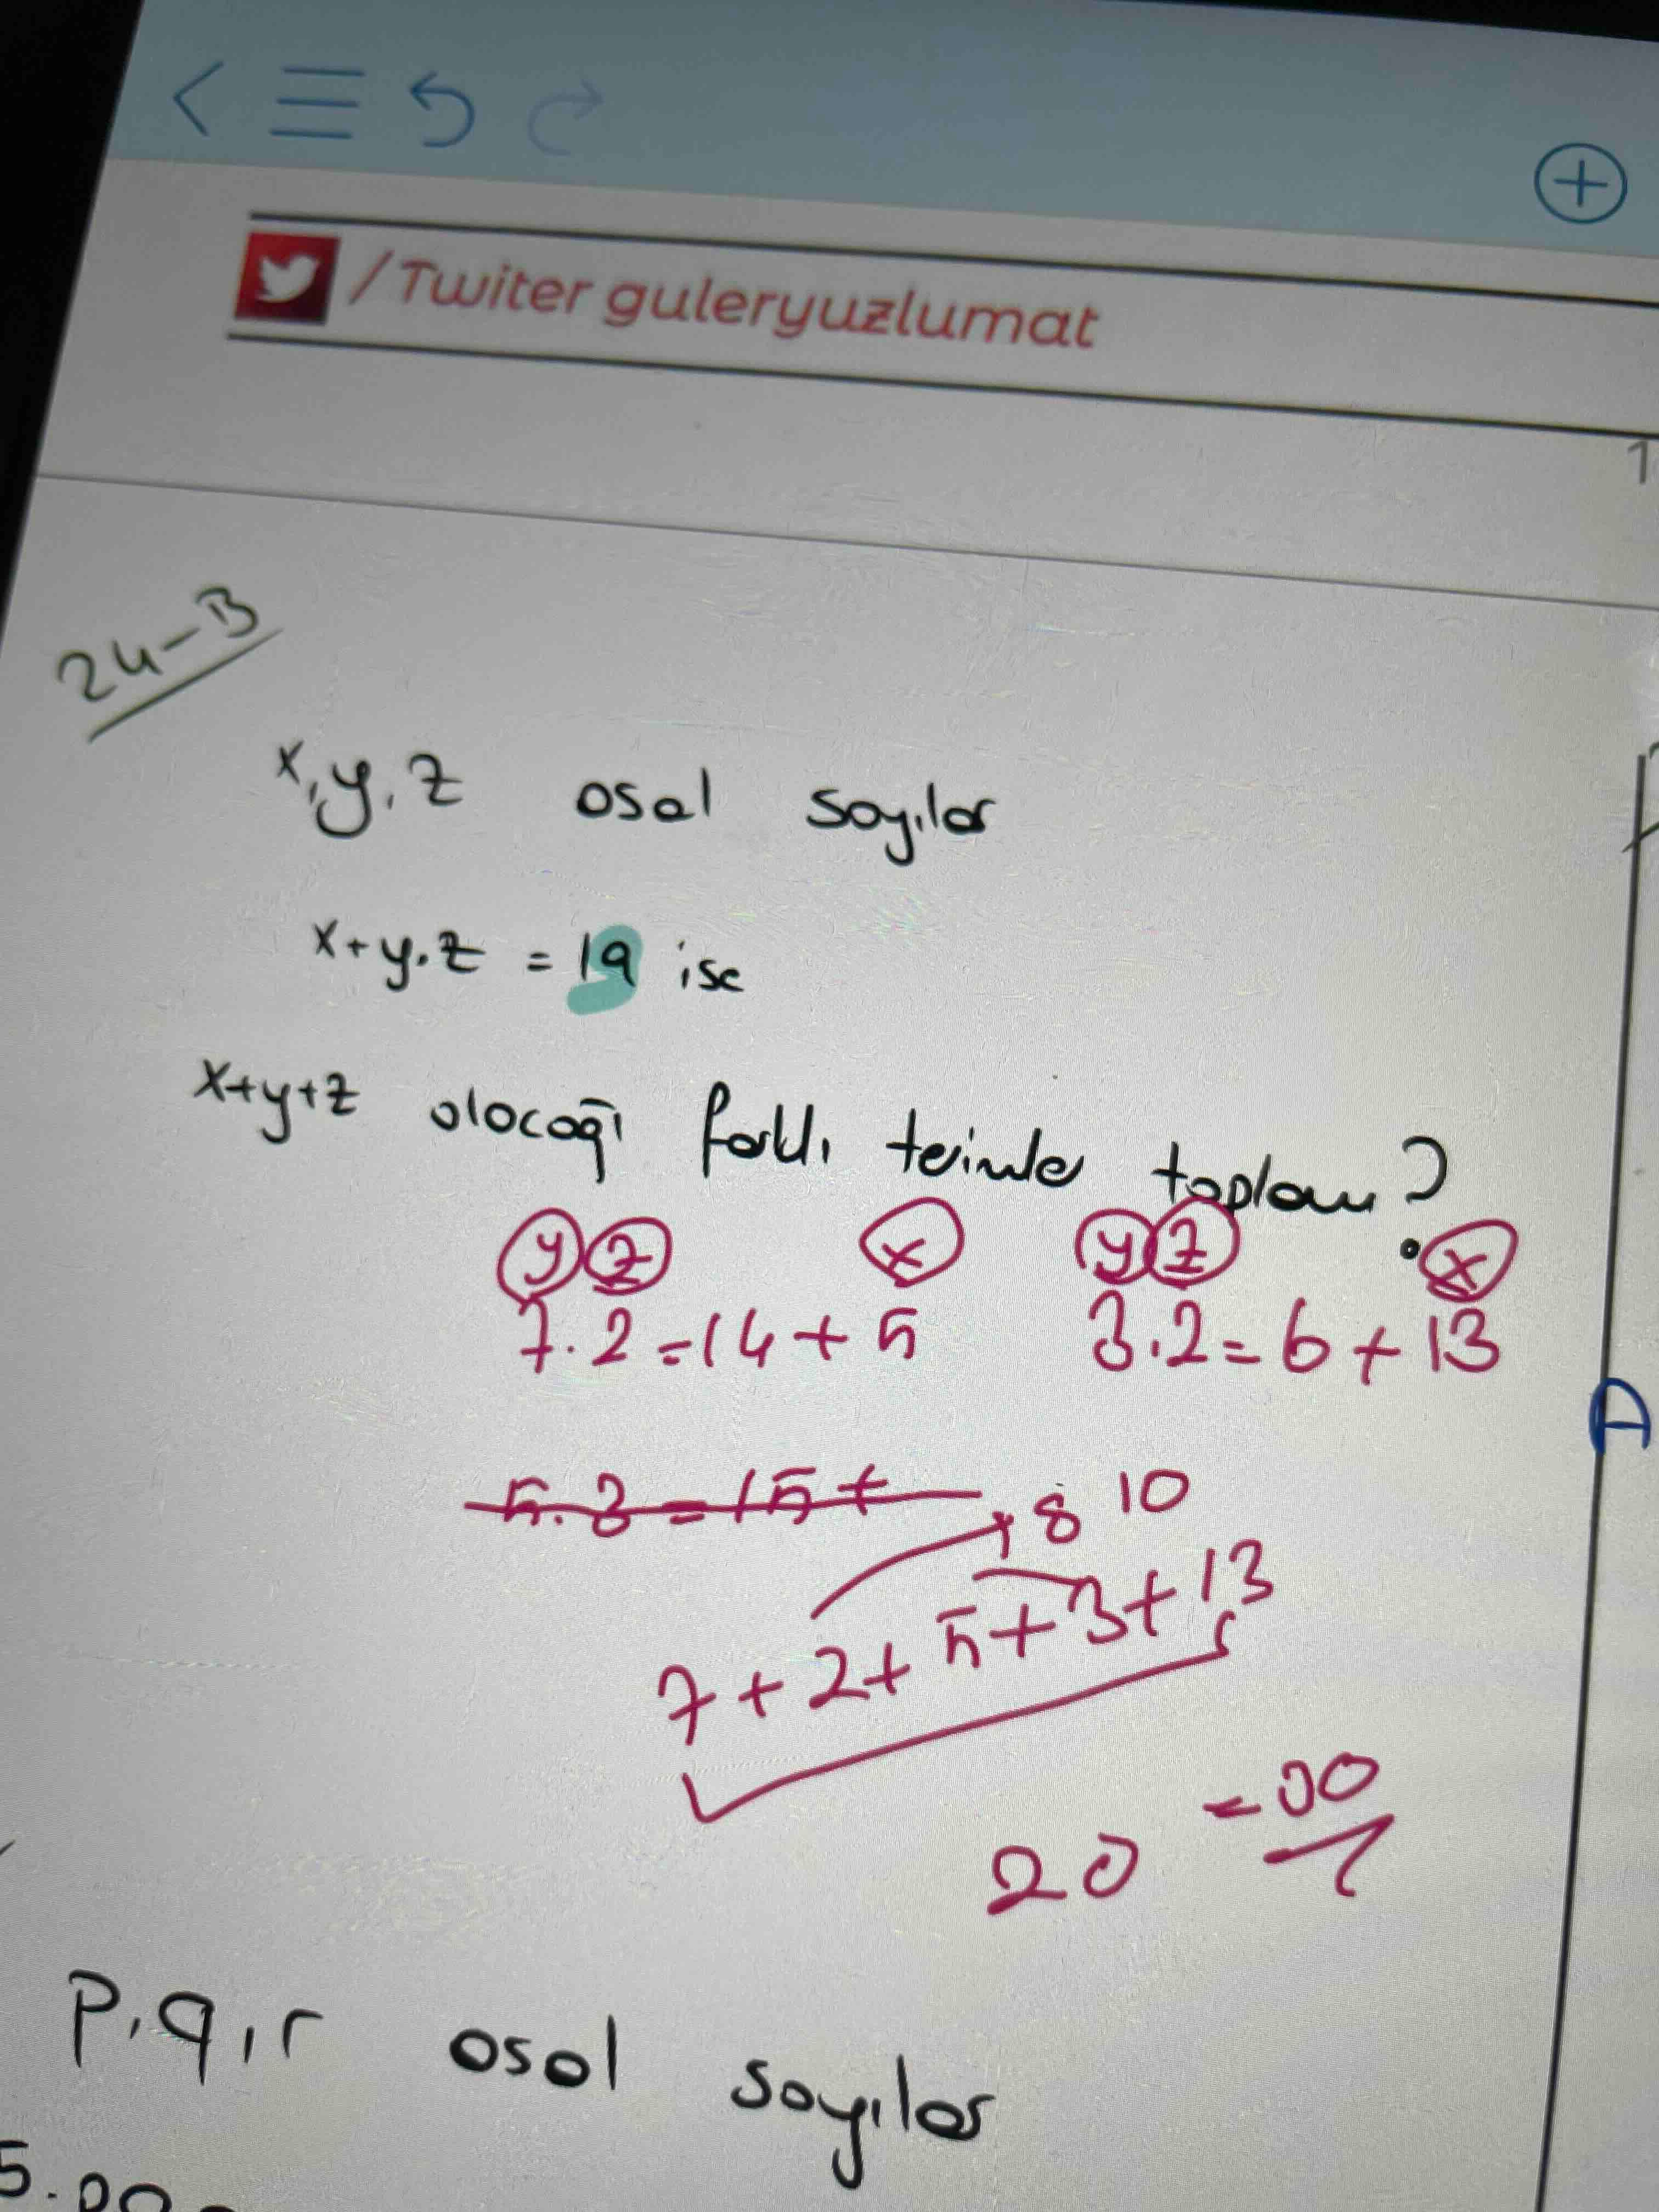 /Twiter guleryuzlumat
1
24-B
x, y, z asal sayılar
x+y.z = 19 ise
x+y+z olacağı farklı
toplamı?
y z x y z x
7.2=14+5 3.2=6+13
5.3=15+
8 10
7+2+5+3+13
=30
20
A
p, q, r asal sayılar